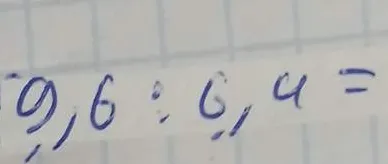 9,6 : 6,4 =